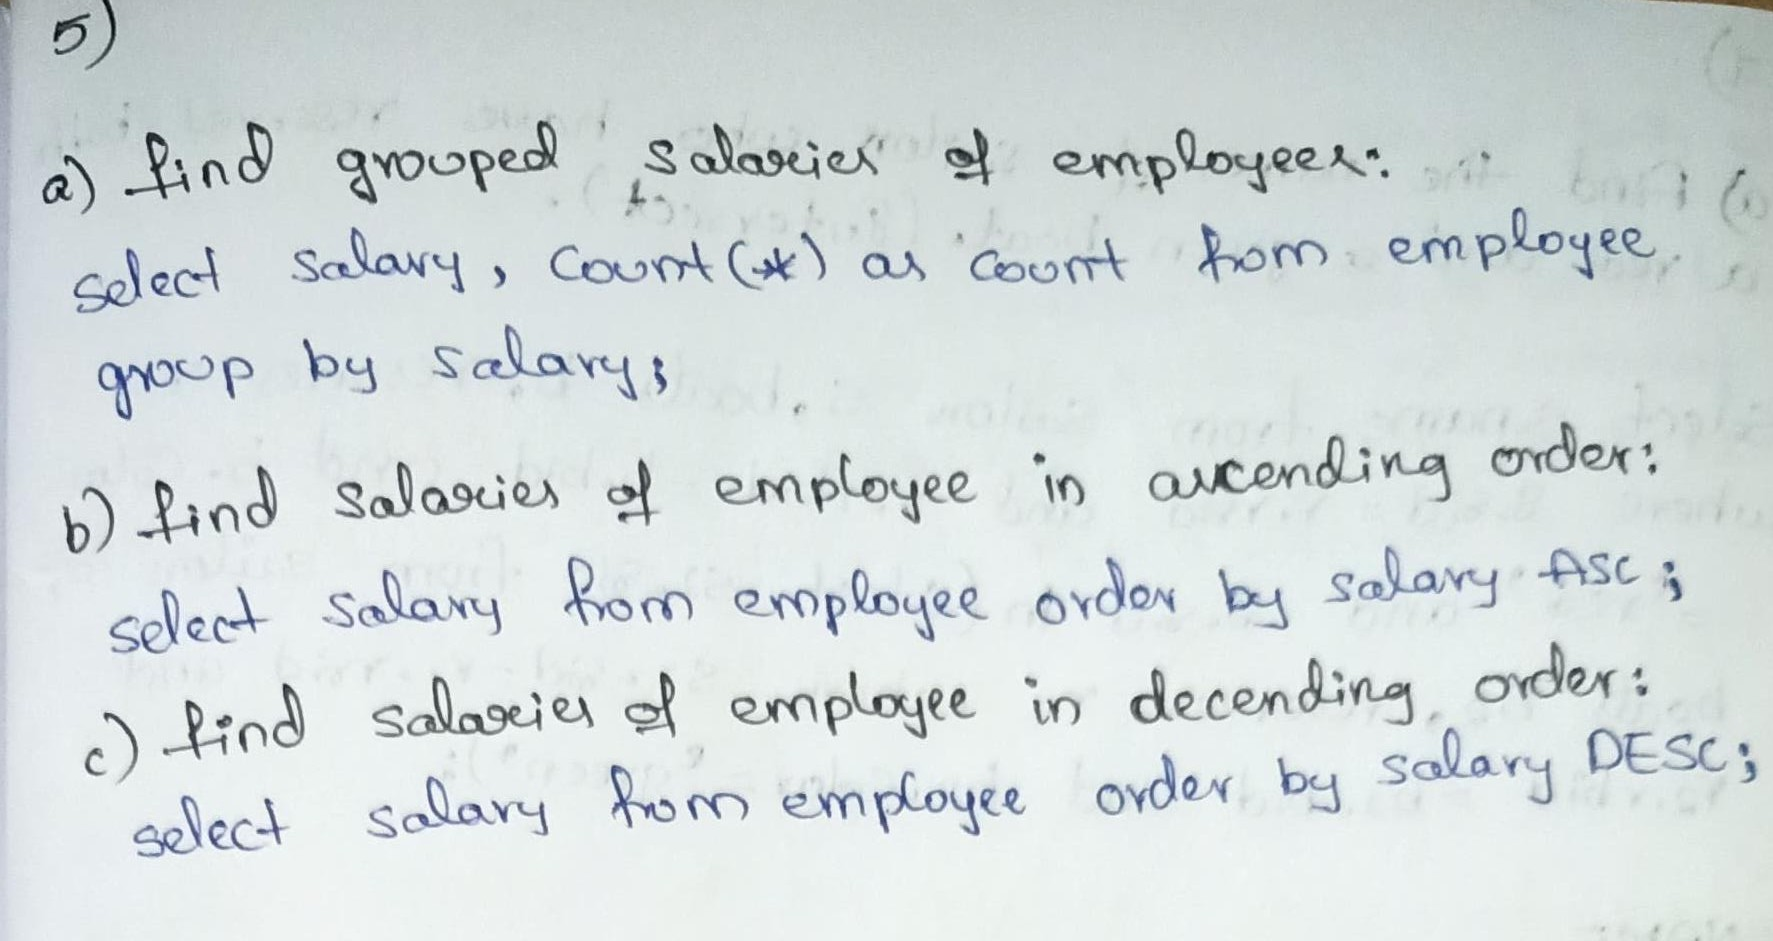 5)
a) find grouped salaries of employees:
select salary, count(*) as count from employee
group by salary;
b) find salaries of employee in ascending order:
select salary from employee order by salary ASC;
c) find salaries of employee in decending order:
select salary from employee order by salary DESC;